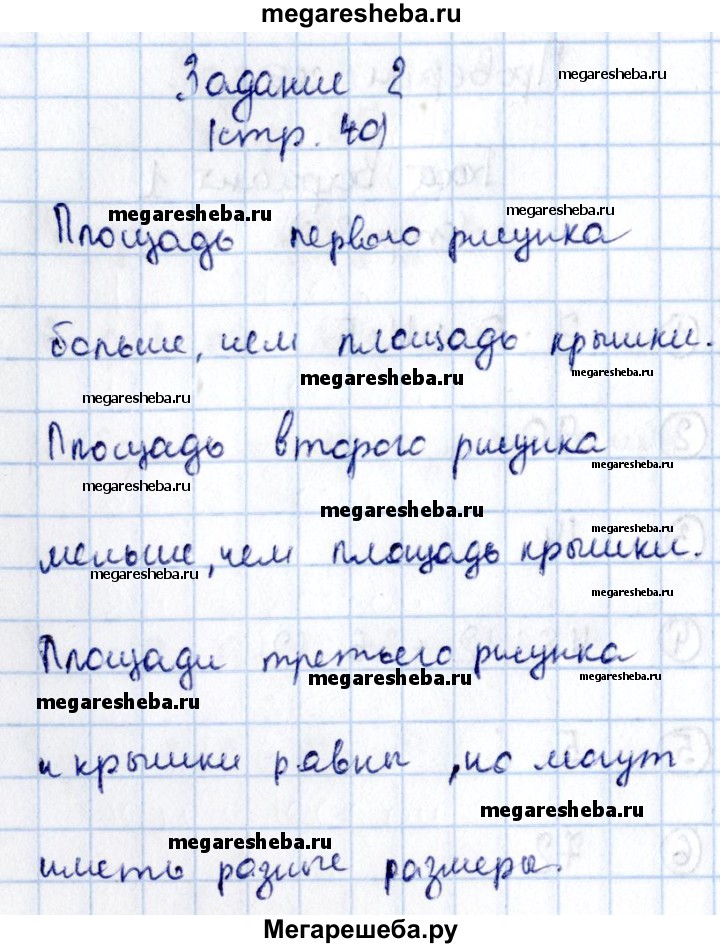 megaresheba.ru
Задание 2
megaresheba.ru
(стр. 40)
megaresheba.ru
megaresheba.ru
Площадь первого рисунка
megaresheba.ru
больше, чем площадь крышки.
megaresheba.ru
megaresheba.ru
megaresheba.ru
Площадь второго рисунка
megaresheba.ru
megaresheba.ru
megaresheba.ru
megaresheba.ru
меньше, чем площадь крышки.
megaresheba.ru
megaresheba.ru
Площади третьего рисунка
megaresheba.ru
megaresheba.ru
megaresheba.ru
и крышки равны, но могут
megaresheba.ru
megaresheba.ru
иметь разные размеры.
Мегарешеба.ру